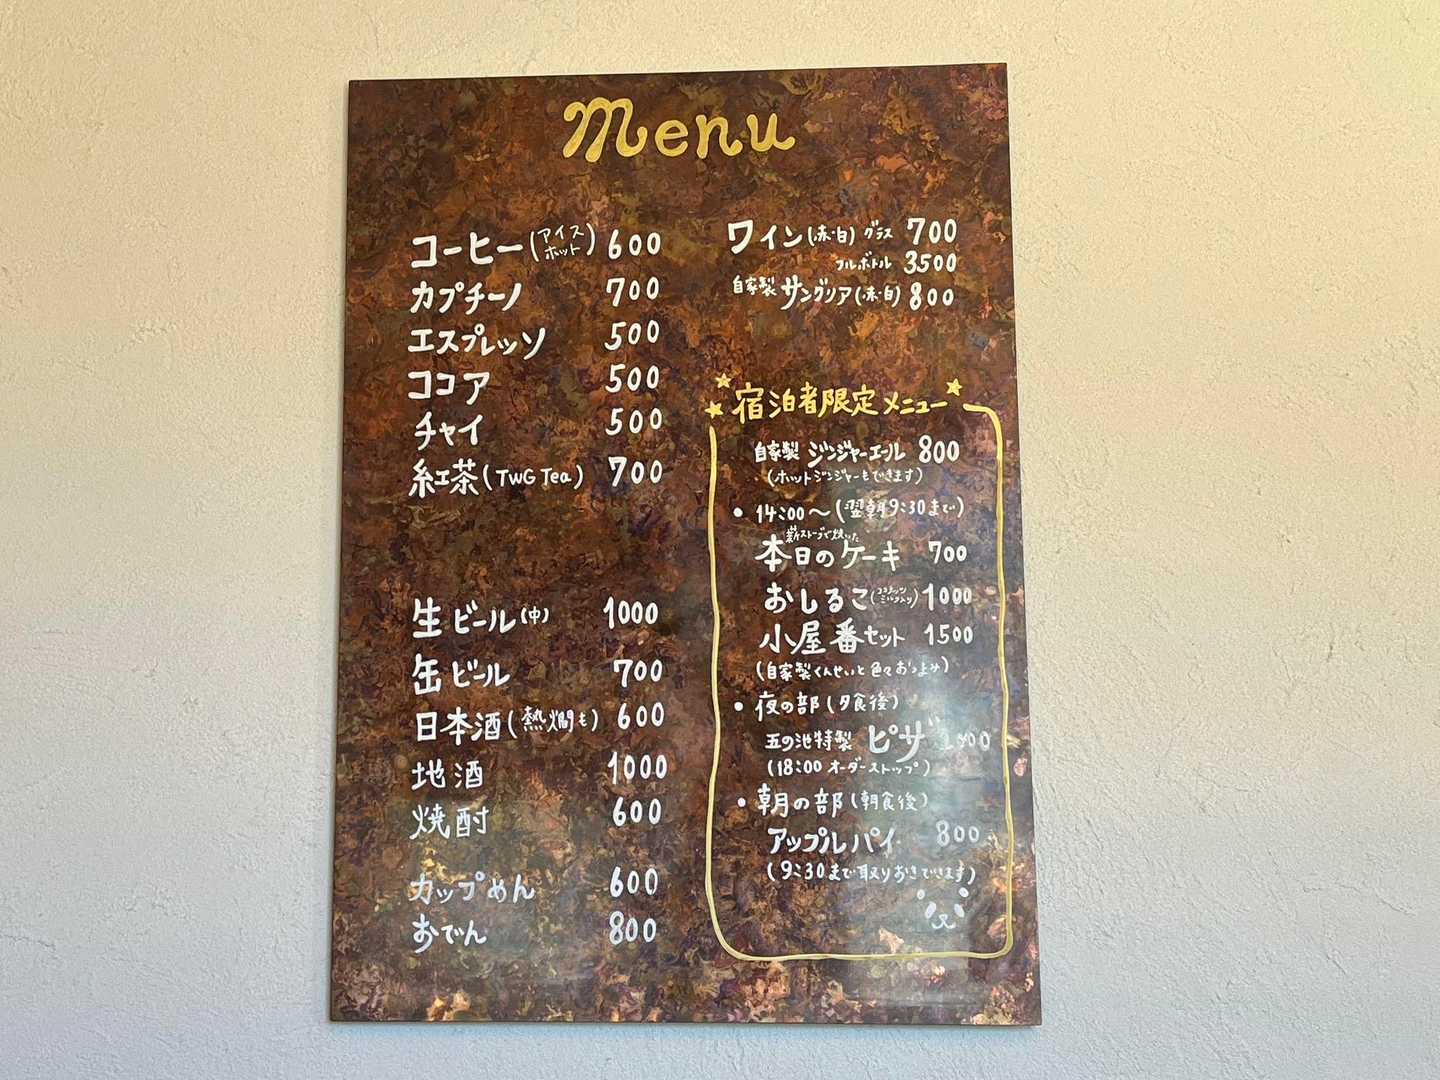 Menu
コーヒー(アイス ホット) 600
カプチーノ 700
エスプレッソ 500
ココア 500
チャイ 500
紅茶(TWG Tea) 700
生ビール(中) 1000
缶ビール 700
日本酒(熱燗も) 600
地酒 1000
焼酎 600
カップめん 600
おでん 800
ワイン(赤・白) グラス 700
フルボトル 3500
自家製 サングリア(赤・白) 800
宿泊者限定メニュー
自家製 ジンジャーエール 800
(ホットジンジャーもできます)
• 14:00〜(翌朝9:30まで)
薪ストーブで焼いた
本日のケーキ 700
おしるこ(ココナッツミルク入り) 1000
小屋番セット 1500
(自家製くんせいと色々おつまみ)
• 夜の部(夕食後)
五の池特製 ピザ
(18:00 オーダーストップ)
• 朝の部(朝食後)
アップルパイ 800
(9:30まで取りおきできます)